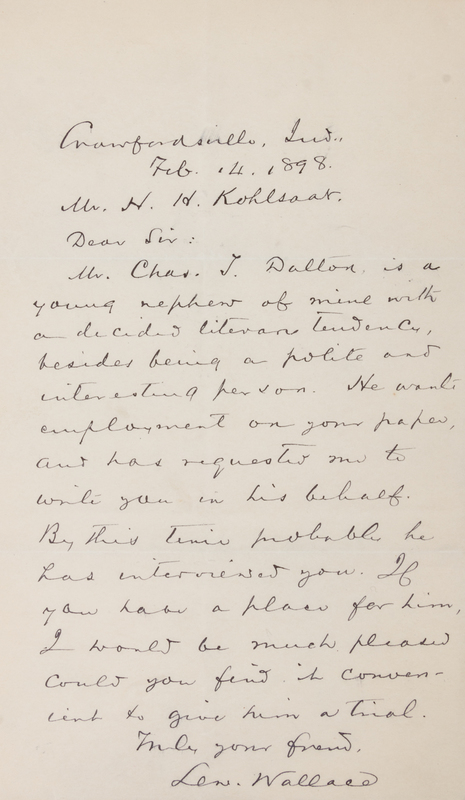 Crawfordsville, Ind.,
Feb. 14. 1898.
Mr. H. H. Kohlsaat.
Dear Sir:
Mr. Chas. T. Dalton, is a
young nephew of mine with
a decided literary tendency,
besides being a polite and
interesting person. He wants
employment on your paper,
and has requested me to
write you in his behalf.
By this time probably he
has interviewed you. If
you have a place for him,
I would be much pleased
could you find it conven-
ient to give him a trial.
Truly your friend,
Lew. Wallace